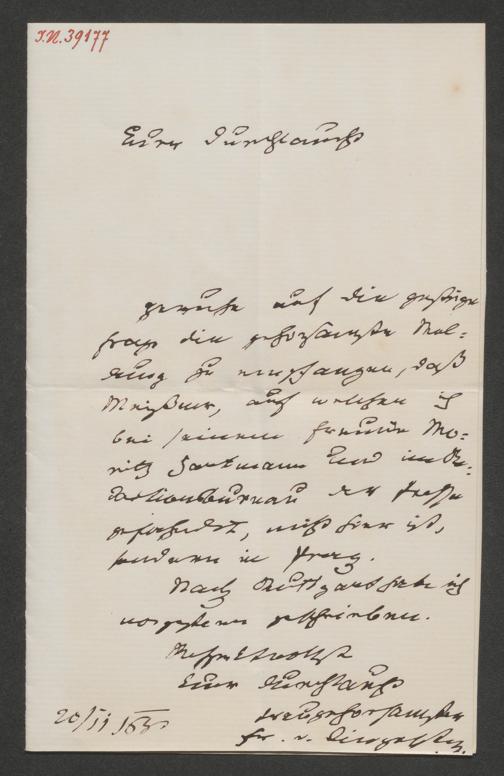 I.N. 39177
Euer Durchlaucht
geruhe auf die gestrige
Frage die gehorsamste Mel-
dung zu empfangen, daß
Meißner, auf welchen ich
bei seinem Freunde Mo-
ritz Hartmann und im Re-
dactionsbureau der Presse
gefahndet, nicht hier ist,
sondern in Prag.
Nach Stuttgart habe ich
vorgestern geschrieben.
Euer Durchlaucht
treugehorsamster
Fr. v. Dingelstedt.
20/II